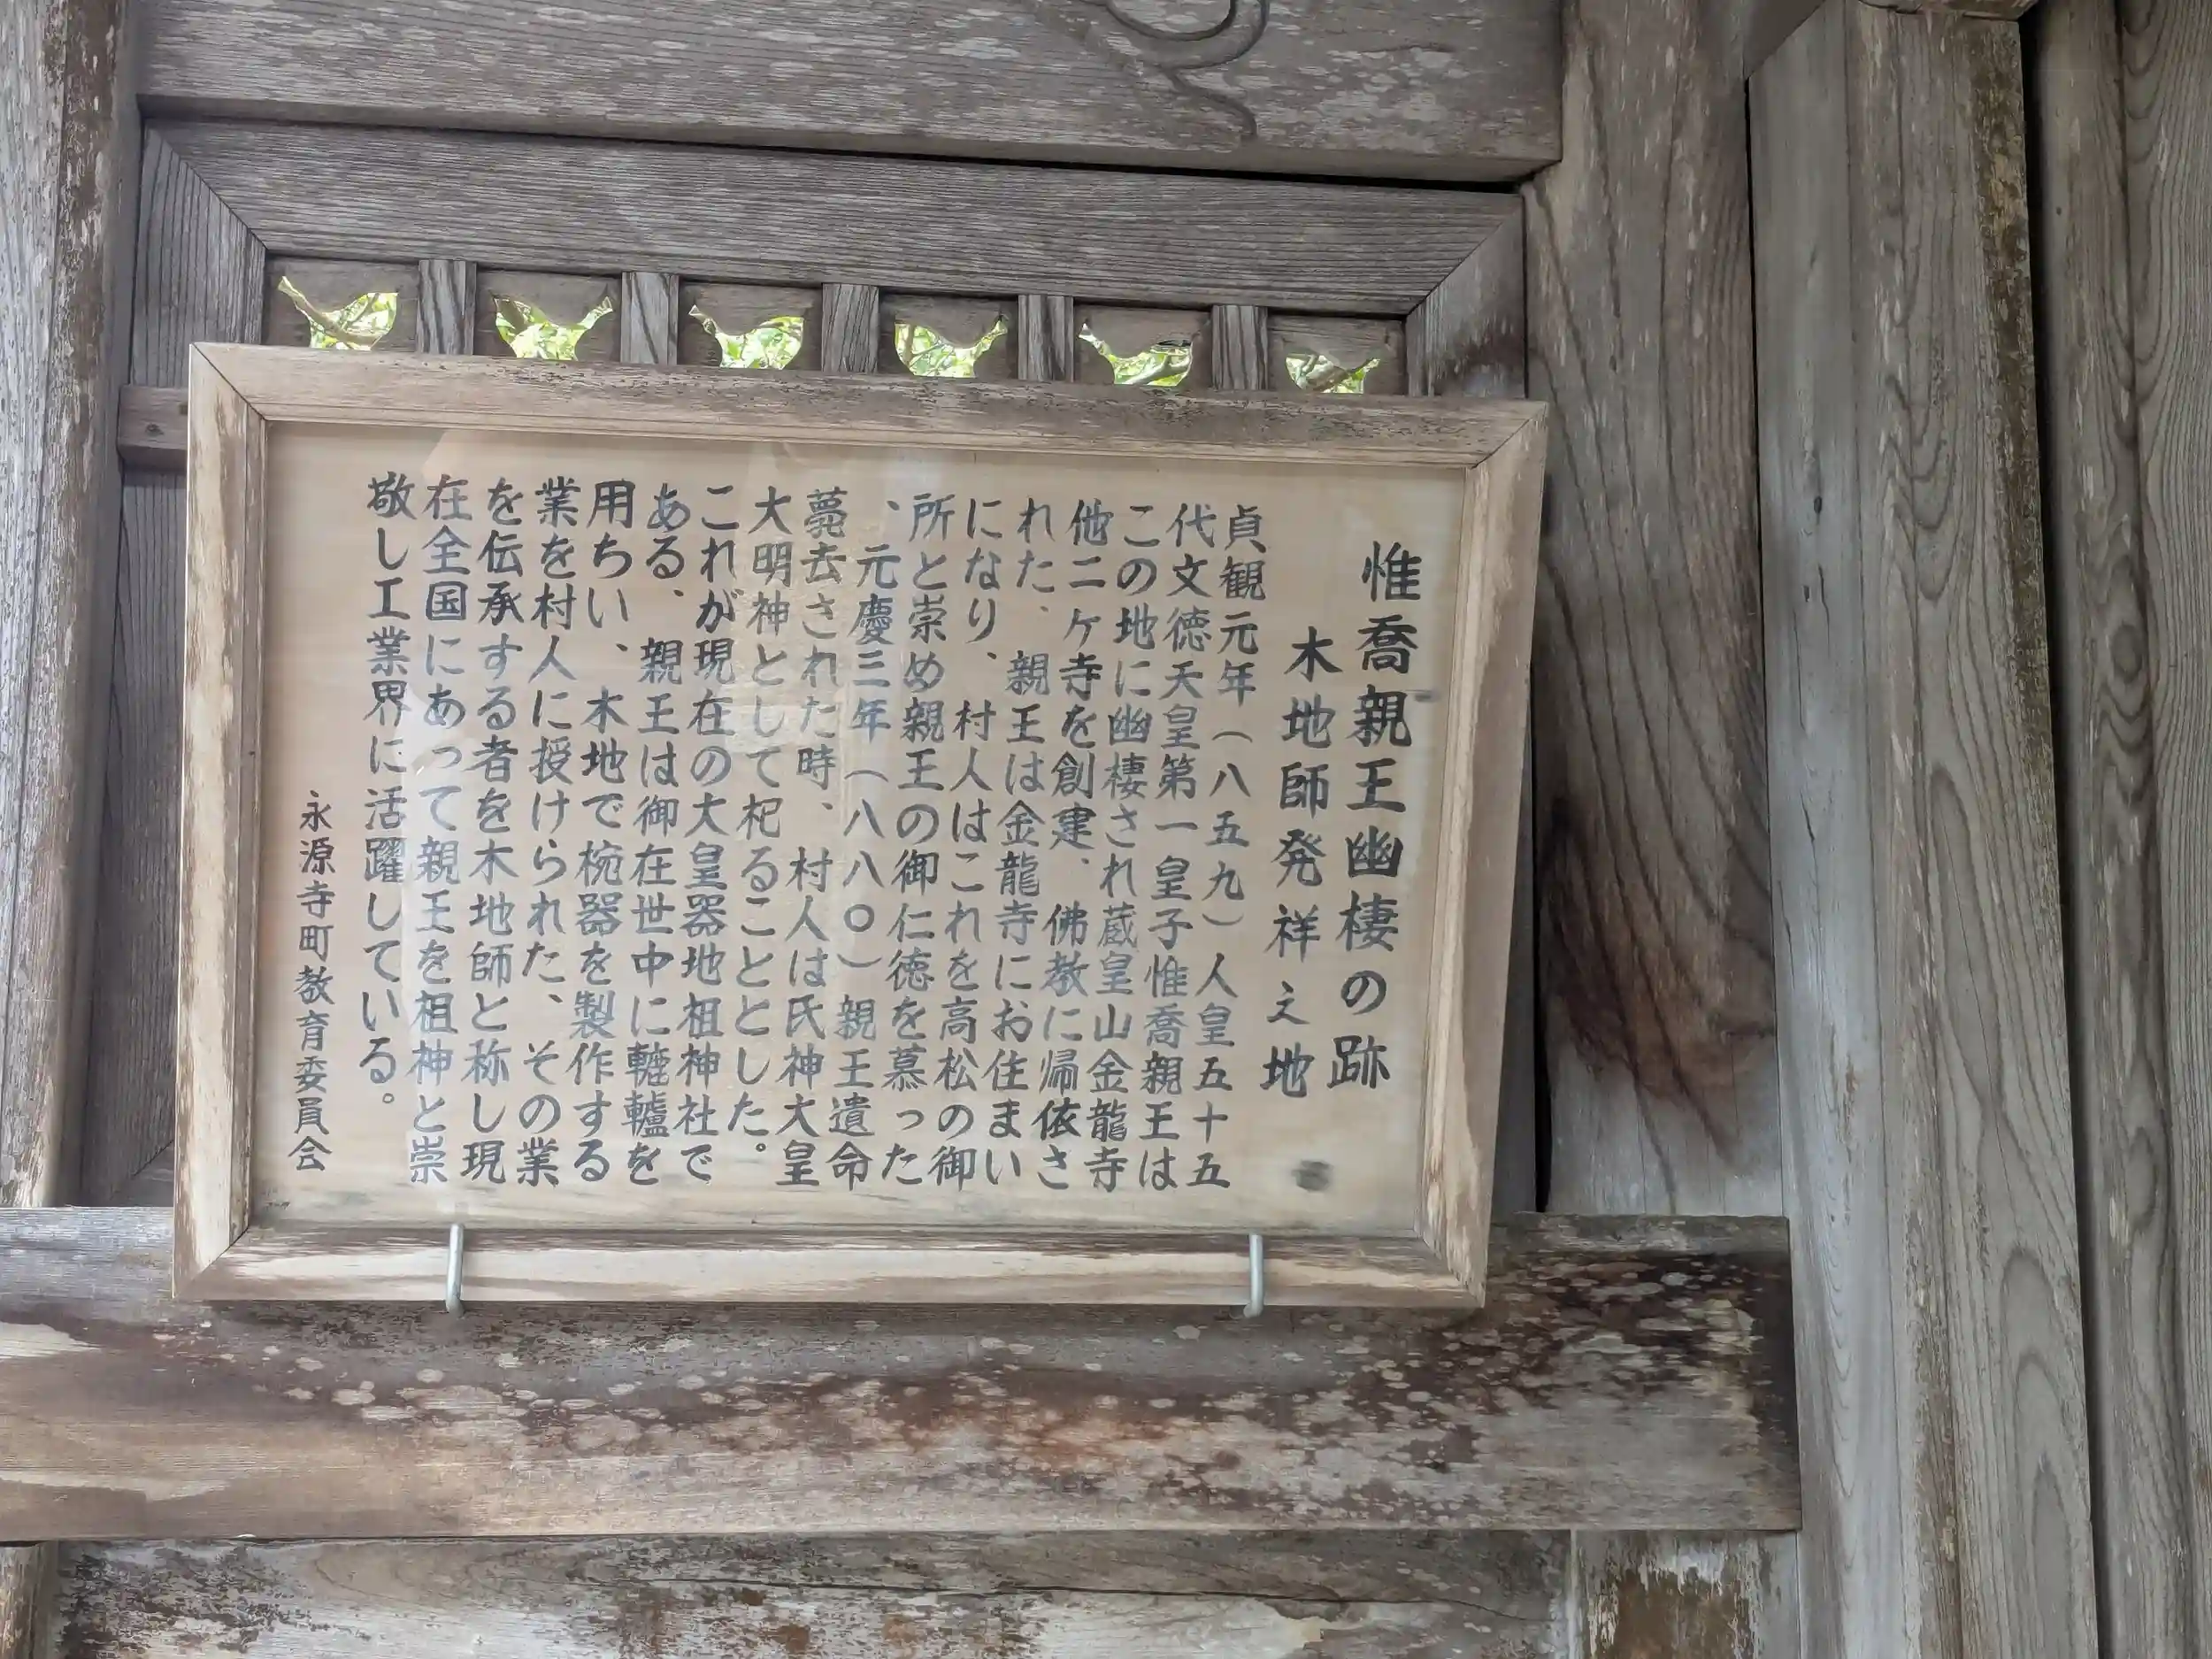 惟喬親王幽棲の跡
木地師発祥之地
貞観元年（八五九）人皇五十五
代文徳天皇第一皇子惟喬親王は
この地に幽棲され蔵皇山金龍寺
他二ヶ寺を創建、佛教に帰依さ
れた、親王は金龍寺にお住まい
になり、村人はこれを高松の御
所と崇め親王の御仁徳を慕った
、元慶三年（八八〇）親王遺命
薨去された時、村人は氏神大皇
大明神として杞ることとした。
これが現在の大皇器地祖神社で
ある、親王は御在世中に轆轤を
用ちい、木地で椀器を製作する
業を村人に授けられた、その業
を伝承する者を木地師と称し現
在全国にあって親王を祖神と崇
敬し工業界に活躍している。
永源寺町教育委員会